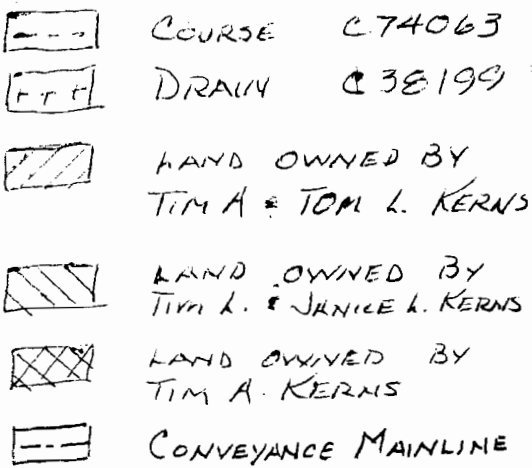 COURSE C74063
DRAIN C38199
LAND OWNED BY
TIM A & TOM L. KERNS
LAND OWNED BY
TIM L. & JANICE L. KERNS
LAND OWNED BY
TIM A. KERNS
CONVEYANCE MAINLINE